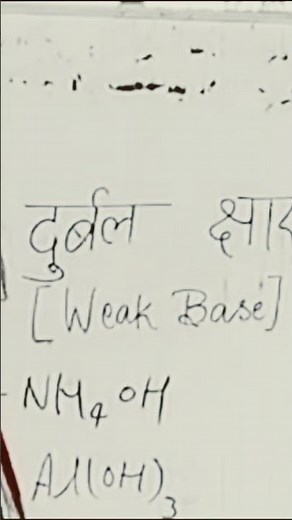 दुर्बल क्षार
[Weak Base]
NH₄OH
Al(OH)₃